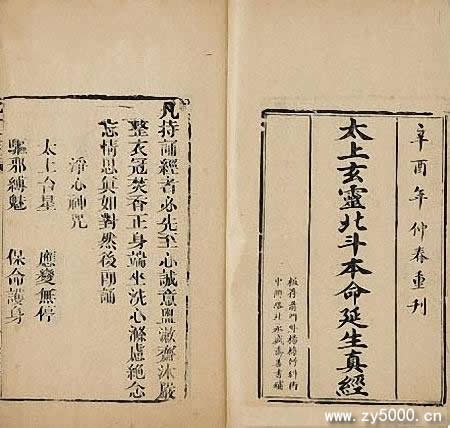 辛酉年仲春重刊
太上玄靈北斗本命延生真經
板存前門外楊梅竹斜街
中間路北永盛齋善書鋪
凡持誦經者必先至心誠意盥漱齋沐嚴
整衣冠焚香正身端坐洗心滌慮絕念
忘情思真如對然後朗誦
淨心神咒
太上台星 應變無停
驅邪縛魅 保命護身
www.zy5000.cn